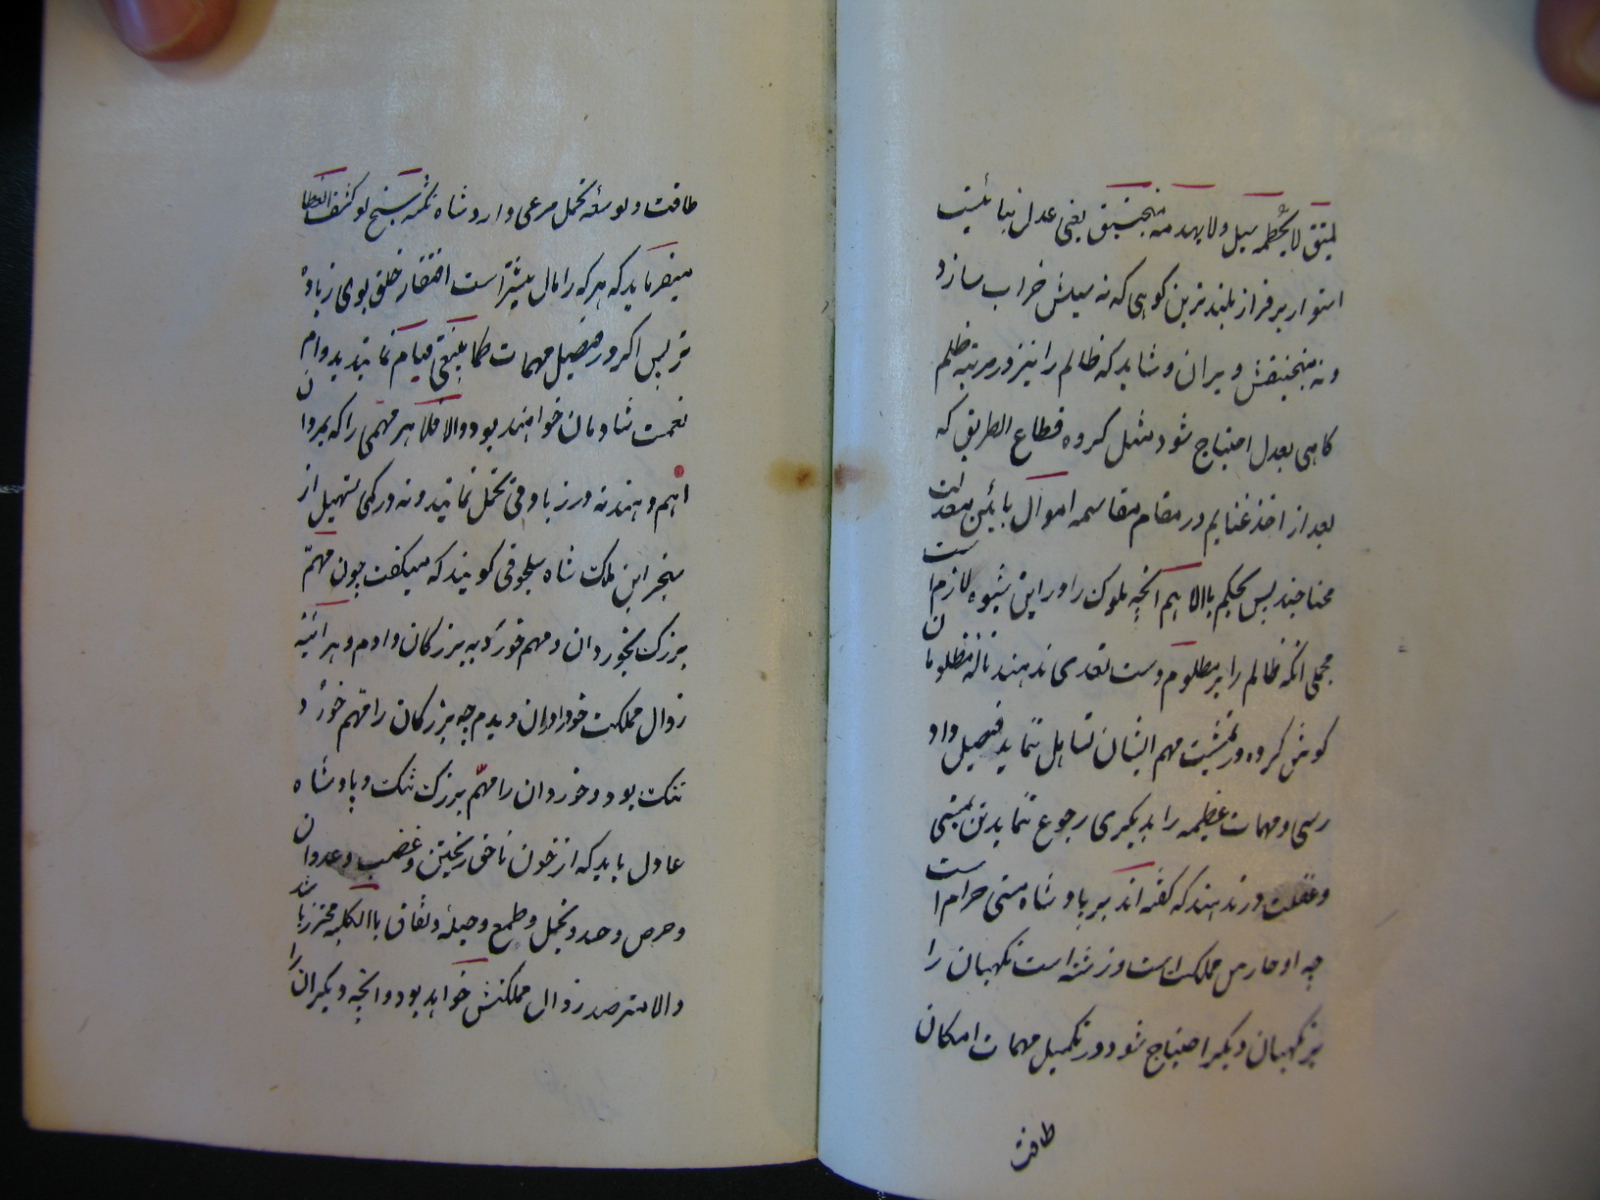 لمیتق لا یحطمه سیل ولا یهدمه منجنیق یعنی عدل بنائیست
استوار بر فراز بلند ترین کوهی که نه سیلش خراب سازد
ونه منجنیقش ویران وشاید که ظالم را نیز در مرتبه ظلم
کاهی بعدل احتیاج شود مثل کروه قطاع الطریق که
بعد از اخذ غنایم در مقام مقاسمه اموال بائین معدلت
محتاجند پس بحکم بالاهم انچه ملوک را در این شیوه لازم است
مجملی انکه ظالم را بر مظلوم دست تعدی ندهند ناله مظلومان
کوش کرده در تمشیت مهم ایشان تساهل ننماید فیصل داد
رسی و مهمات عظیمه را بدیکری رجوع ننماید تن بمستی
وغفلت در ندهند که کفته اند بر پادشاه مستی حرام است
چه او حارس مملکت است وزشته است نکهبان را
بر نکهبان دیکر احتیاج شود در تکمیل مهمات امکان
طاقت
طاقت و توسعه تحمل مرعی دارد شاه نکته سنج لو کشف الغطا
میفرماید که هر که را مال بیشتر است افتقار خلق بوی زیاده
تر پس اکر در فیصل مهمات کما ینبغی قیام نمایند بدوام
نعمت شادمان خواهند بود والا فلا هر مهمی را که بمردان
اهم دهند نه در زیادتی تحمل نمایند و نه در کمی تسهیل از
سنجر ابن ملک شاه سلجوقی کویند که میکفت چون مهم
بزرک بخوردان و مهم خورد به بزرکان دادم و هر آئینه
زوال مملکت خود را در ان دیدم چه بزرکان را مهم خورد
ننک بود و خوردان را مهم بزرک تنک و پادشاه
عادل باید که از خون ناحق ریختن و غضب و عدوان
و حرص و حسد و بخل و طمع و حیله و نفاق بالکلیه محترز باشد
والا مترصد زوال مملکتش خواهد بود و انچه دیکران را